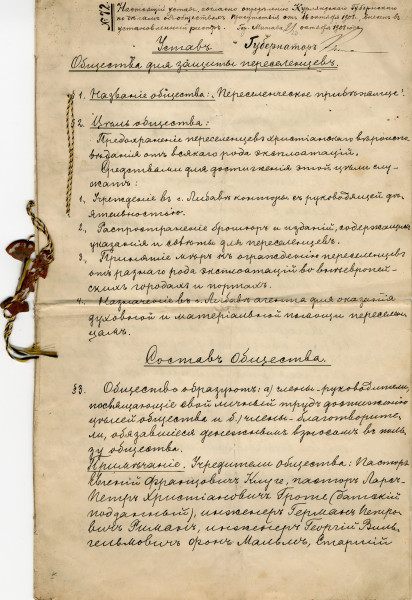 № 72.
Настоящій уставъ, согласно опредѣленію Курляндскаго Губернскаго
по дѣламъ объ обществахъ Присутствія отъ 16 октября 1908, внесенъ въ
установленный реестръ. Гор. Митава, октября 1908 года.
Уставъ Губернаторъ
Общества для защиты переселенцевъ.
§ 1. Названіе общества: "Переселенческое прибѣжище".
§2. Цѣль общества:
Предохраненіе переселенцевъ христіанскаго вѣроиспо-
вѣданія отъ всякаго рода эксплоатацій.
Средствами для достиженія этой цѣли слу-
жатъ:
1, Учрежденіе въ г. Либавѣ конторы съ руководящей дѣ-
ятельностью.
2, Распространеніе брошюръ и изданій, содержащихъ
указанія и совѣты для переселенцевъ.
3, Принятіе мѣръ къ огражденію переселенцевъ
отъ разнаго рода эксплоатацій во внѣевропей-
скихъ городахъ и портахъ.
4, Назначеніе въ г. Либавѣ агента для оказанія
духовной и матеріальной помощи переселен-
цамъ.
Составъ Общества.
§3. Общество образуютъ: а) члены-руководители,
посвящающіе свой личный трудъ достиженію
цѣлей общества и б) члены-благотворите-
ли, обязавшіеся денежнымъ взносамъ въ поль-
зу общества.
Примѣчаніе. Учредители общества: Пасторъ
Евгеній Францовичъ Клуге, пасторъ Ларсъ-
Петръ Христіановичъ Гроте (датскій
подданный), инженеръ Германъ Петро-
вичъ Риманъ, инженеръ Георгій Виль-
гельмовичъ фонъ Мальмъ, Старшій